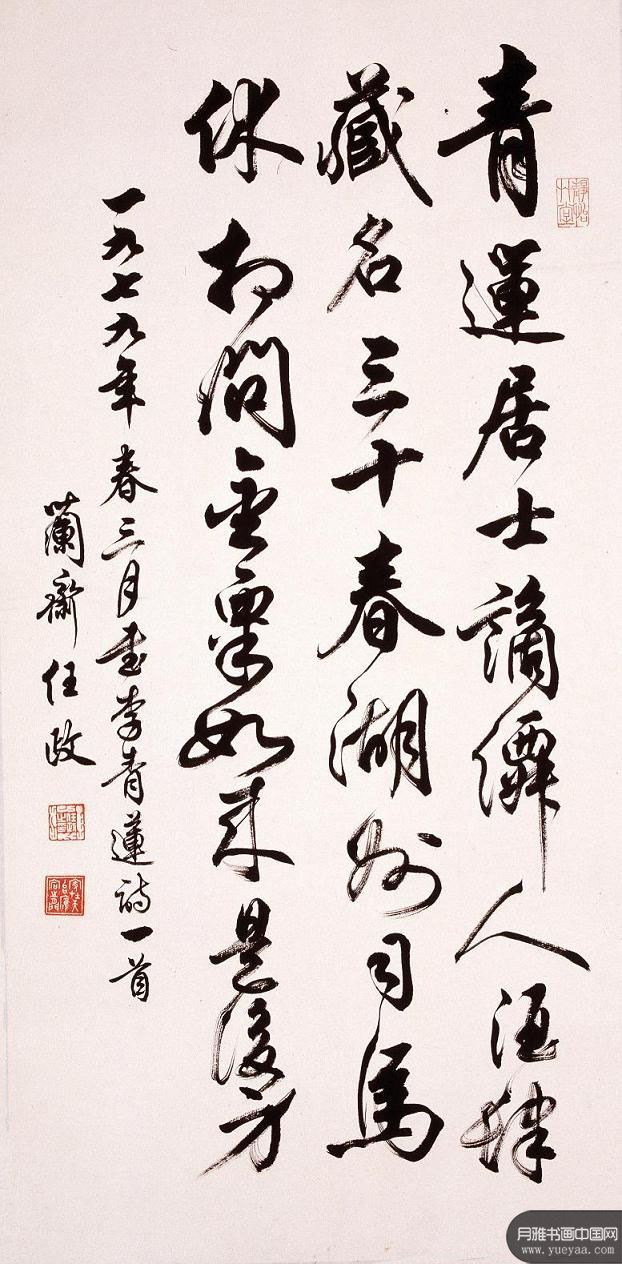 青蓮居士謫僊人酒肆
藏名三十春湖州司馬
休相問金粟如来是後身
一九七九年春三月書李青蓮詩一首
蘭齋任政
月雅书画中国网
www.yueyaa.com